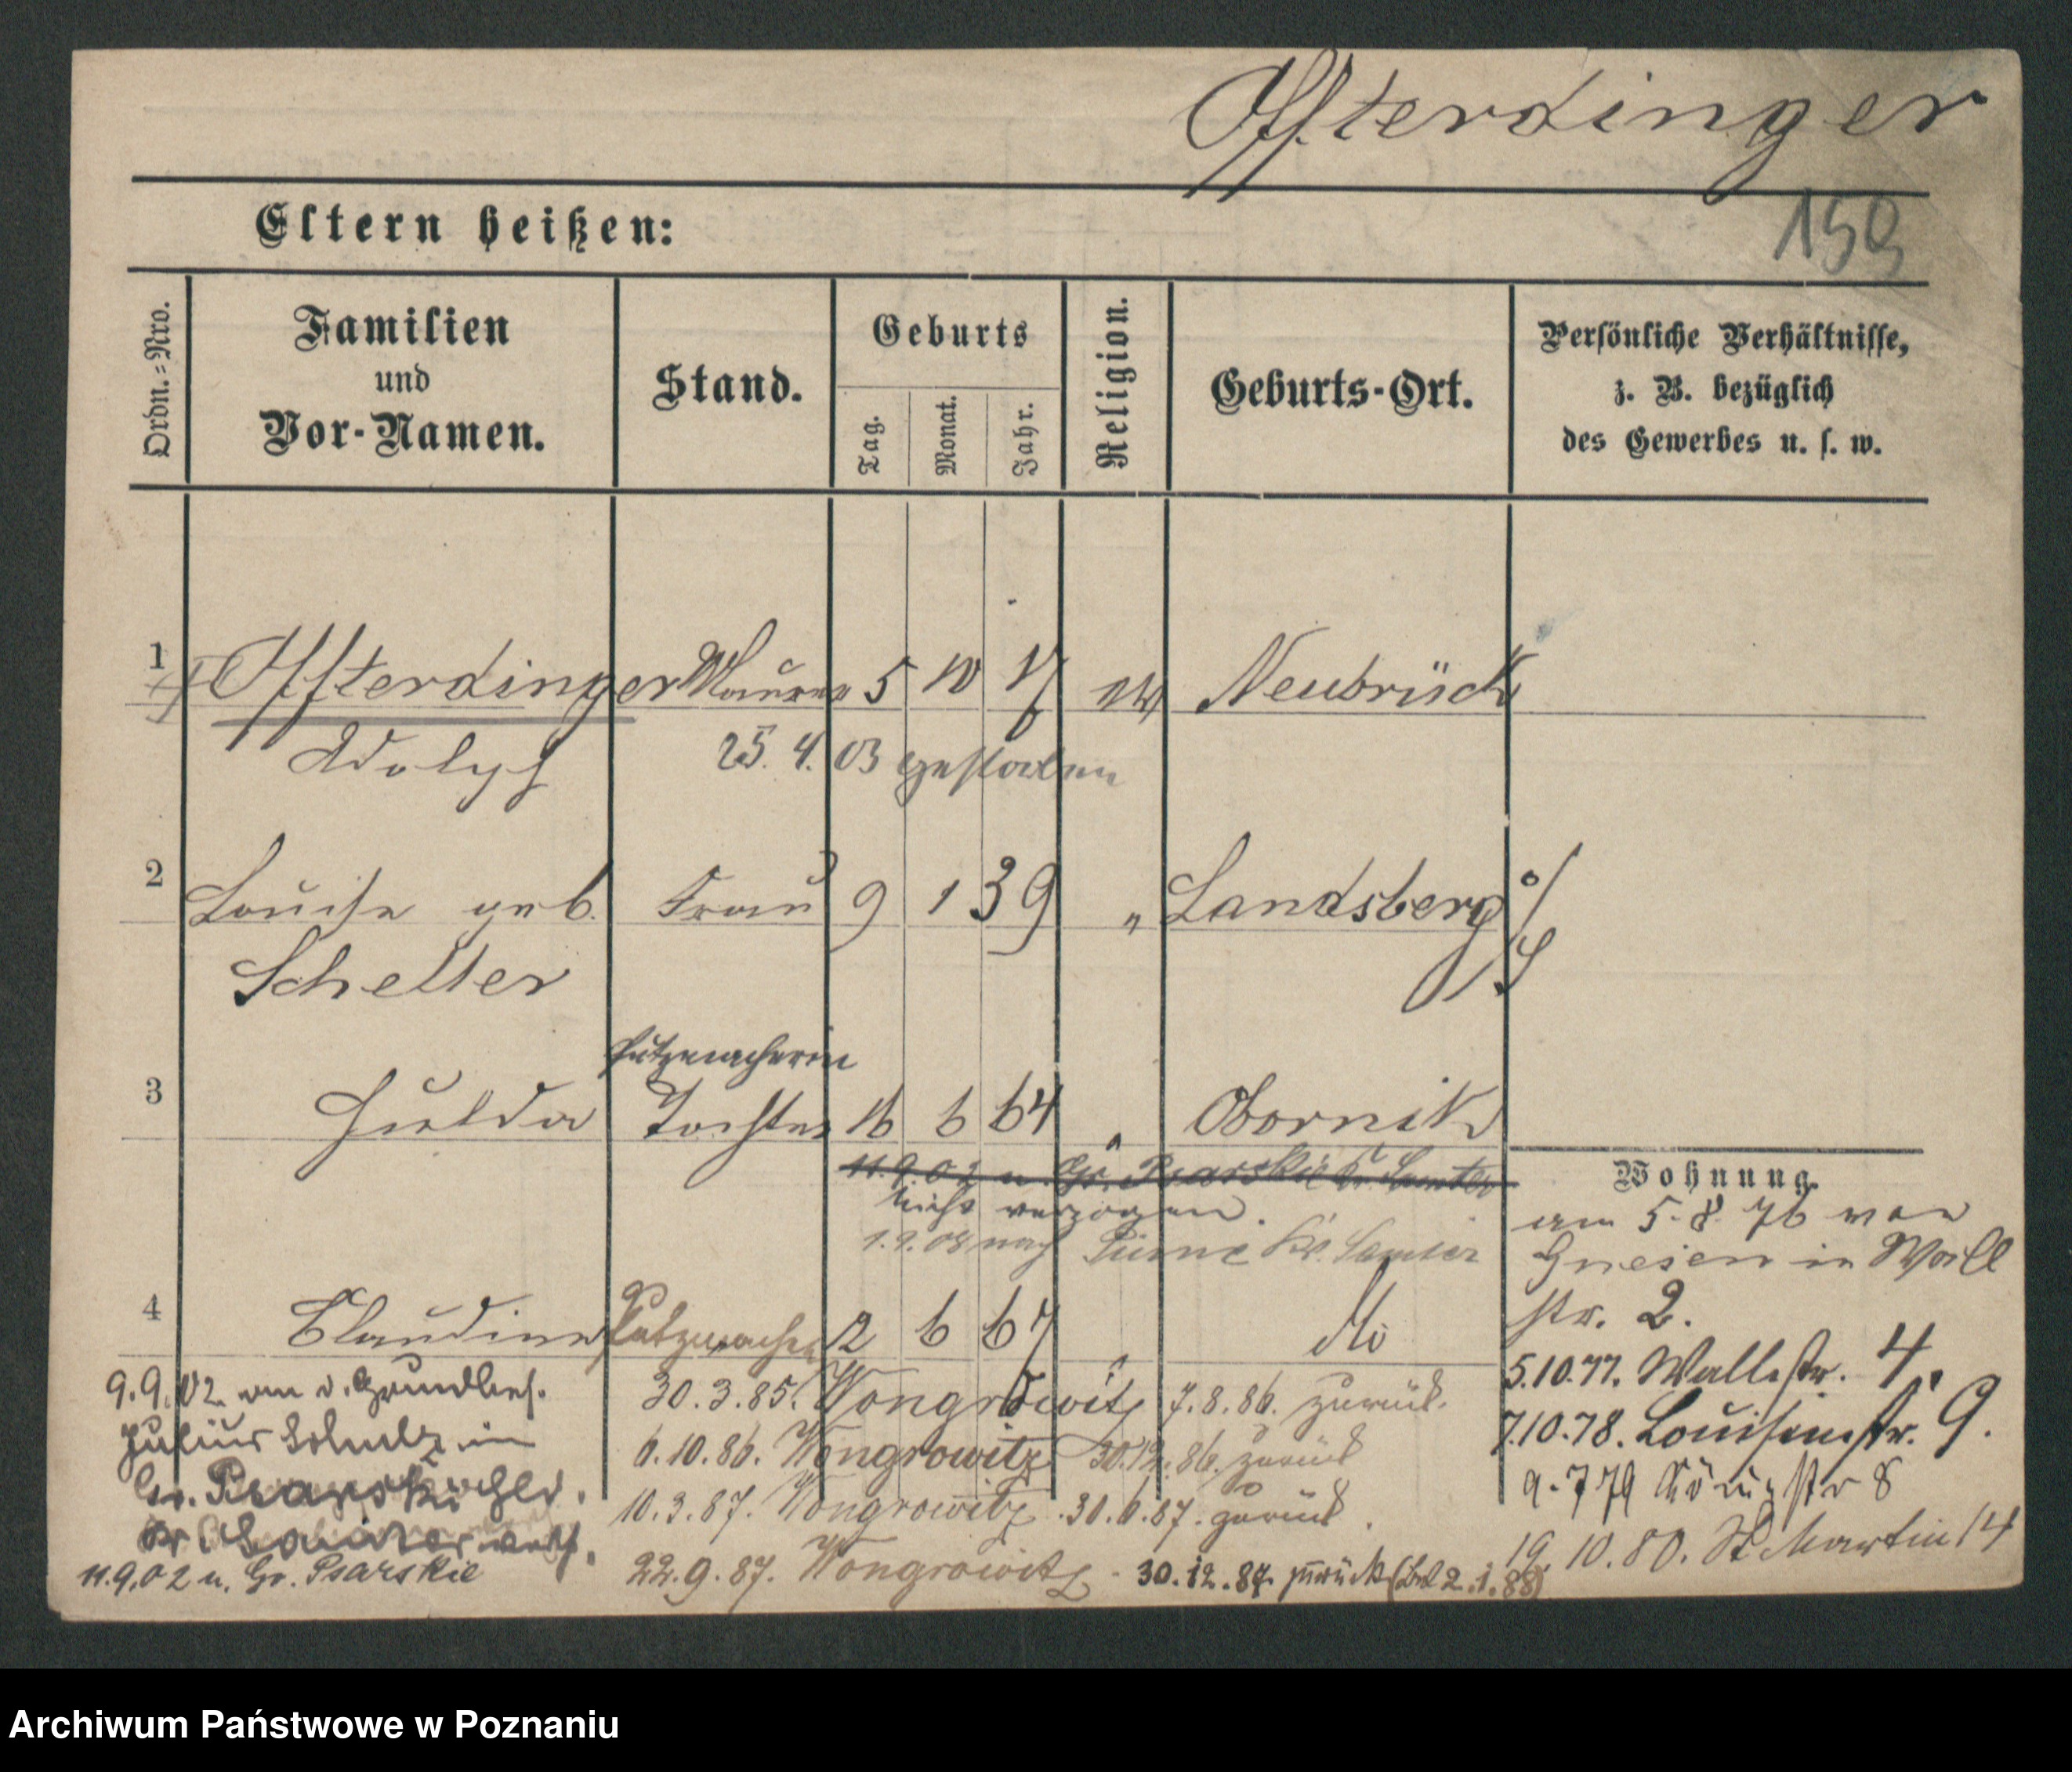 Ofterdinger
159
Eltern heißen:
Ordn.=Nro.
Familien
und
Vor-Namen.
Stand.
Geburts
Tag.
Monat.
Jahr.
Religion.
Geburts-Ort.
Persönliche Verhältnisse,
z. B. bezüglich
des Gewerbes u. s. w.
1 Ofterdinger Maurer 5 10 17 ev Neubrück
Adolph 25. 4. 03 gestorben
2 Louise geb. Frau 9 1 39 " Landsberg
Schelter
Putzmacherin
3 Hulda Tochter 16 6 64 " Obornik
11.9.02 n. Gr. Psarskie Kr. Samter
nicht verzogen.
1.9.08 nach Kr. Samter
4 Claudine Putzmacherin 12 6 67 " do
Wohnung.
am 5. 8. 76 von
Gnesen in Wall
str. 2.
5.10.77. Wallstr. 4.
7.10.78. Louisenstr. 9.
9.7 79 Königstr 8
19. 10. 80. St Martin 14
9.9.02 an d. Grundbes.
Julius Schulz in
Gr. Psarski
11.9.02 n. Gr. Psarskie
30.3.85. Wongrowitz 7.8.86. zurück.
6.10.86. Wongrowitz 30.12.86. zurück
10.3.87. Wongrowitz 31.6.87. zurück.
22.9.87. Wongrowitz - 30.12.87 zurück (bal 2.1.88)
Archiwum Państwowe w Poznaniu